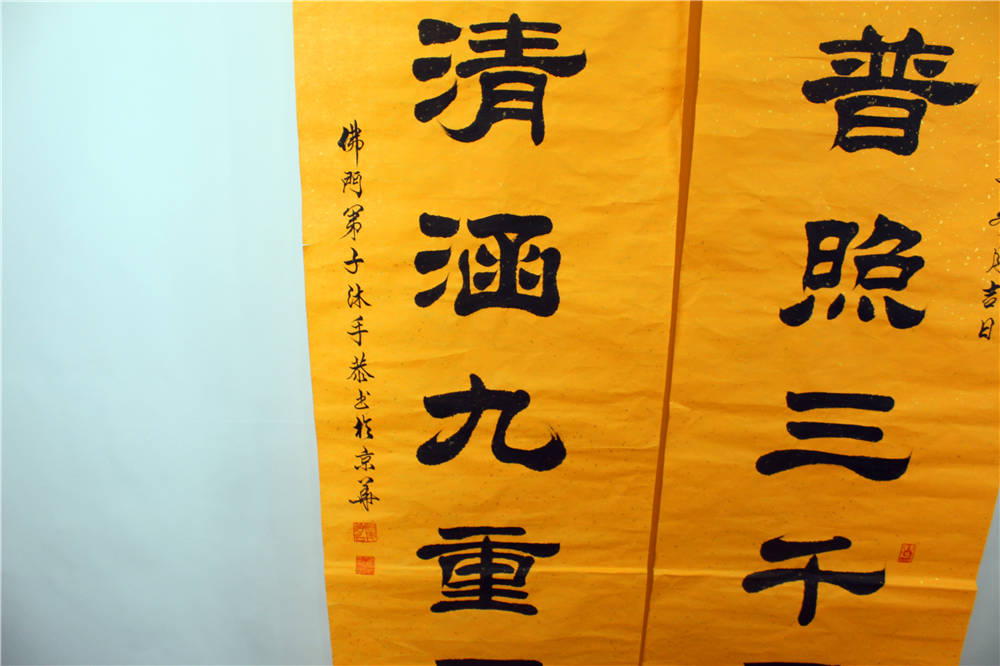 普照三千
吉日
清涵九重
佛門弟子沐手恭书於京華